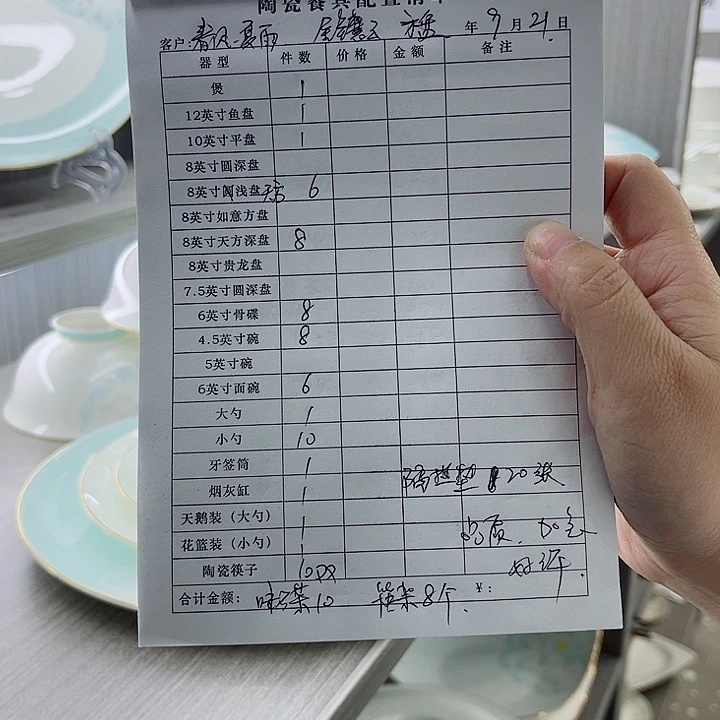 陶瓷餐具配置清单
客户: 年 9 月 21 日
器型 件数 价格 金额 备注
煲 1
12英寸鱼盘 1
10英寸平盘 1
8英寸圆深盘
8英寸浅盘 6
8英寸如意方盘
8英寸天方深盘 8
8英寸贵龙盘
7.5英寸圆深盘
6英寸骨碟 8
4.5英寸碗 8
5英寸碗
6英寸面碗 6
大勺 1
小勺 10
牙签筒 1
烟灰缸 1 20张
天鹅装（大勺） 1
花篮装（小勺） 1 品质.加急
陶瓷筷子 10 好评.
合计金额: 10 8个. ¥: